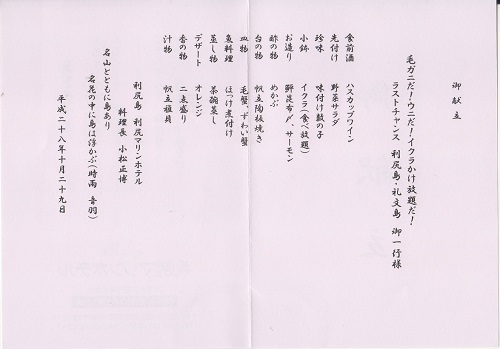 御献立
毛ガニだ!ウニだ!イクラかけ放題だ!
ラストチャンス 利尻島・礼文島 御一行様
食前酒 ハスカップワイン
先付け 野菜サラダ
珍味 味付け数の子
小鉢 イクラ(食べ放題)
お造り 鮃昆布〆、サーモン
酢の物 めかぶ
台の物 帆立陶板焼き
皿物 毛蟹、ずわい蟹
魚料理 ほっけ煮付け
蒸し物 茶碗蒸し
デザート オレンジ
香の物 二点盛り
汁物 帆立稚貝
利尻島 利尻マリンホテル
料理長 小松正博
名山とともに島あり
名花の中に島は浮かぶ(時雨 音羽)
平成二十八年十月二十九日